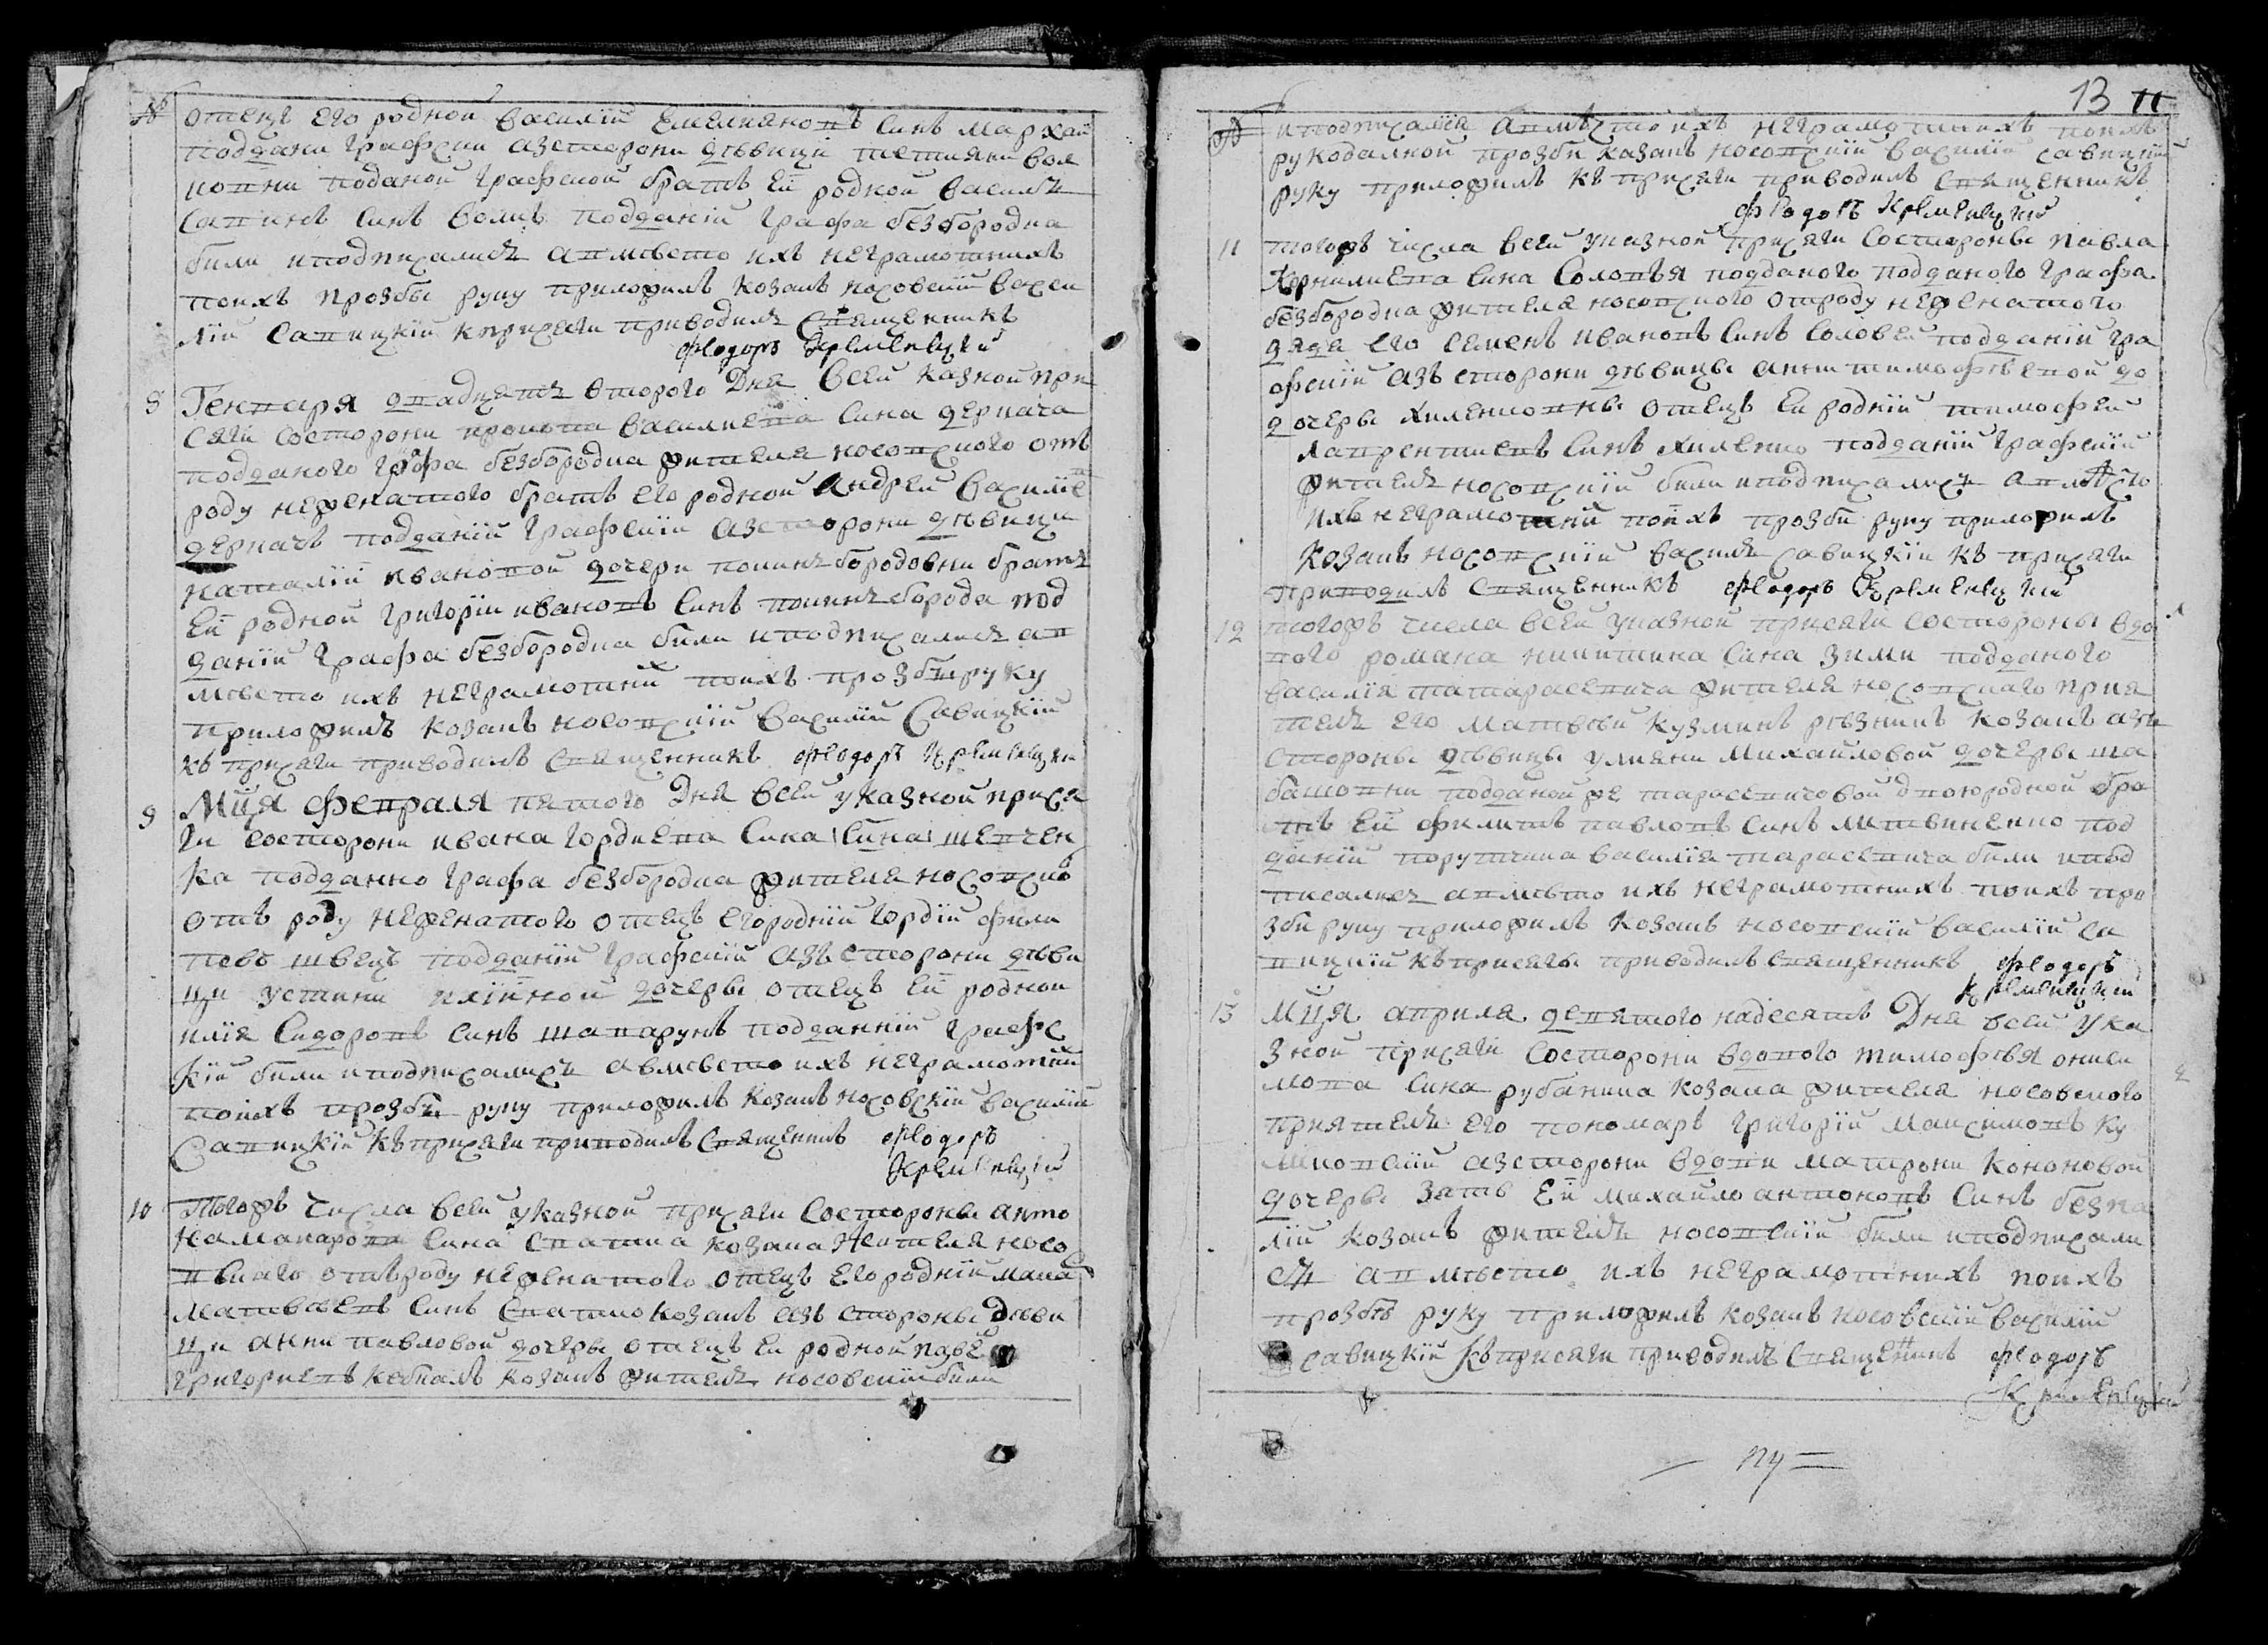 №
отецъ его родной василій Емелияновъ синъ Мархай
подданъ графски азсторони дѣвици тетияни вол
ковни поданой графской братъ Ей родной василь
савинъ синъ волкъ подданій графа безбородка
били иподписались авмѣсто ихъ неграмотнихъ
поихъ прозбы руку приложилъ козакъ носовскій васи
лій савицкій кприсяги приводилъ священникъ
Феодоръ Кременецкій
8 Генваря двадцять второго Дня Всей казной при
сяги состорони прокопа василиева сина деркача
подданого графа безбородка жителя носовского отъ
роду неженатого братъ его родной Андрей василіе
деркачъ подданій графскій азсторони дѣвици
наталій ивановой дочери
Ей родной григорій ивановъ синъ под
даній графа безбородка били иподписались ав
мѣсто ихъ неграмотній поихъ прозби руку
приложилъ козакъ носовскій василій Савицкій
къ присяги приводилъ священникъ Феодоръ Кременецкій
9 Мця февраля пятого Дня всей указной прися
ги состорони ивана гордиева сина \сина\ шевчен
ка подданно графа безбородка жителя носовско
отъ роду неженатого отецъ егородній гордій фили
повъ швецъ подданій графскій азъ сторони дѣви
ци устини иліиной дочеры отецъ Ей родной
илія сидоровъ синъ шапарунъ подданній графс
кій били иподписались авмѣсто ихъ неграмотній
поихъ прозби руку приложилъ козакъ носовскій василій
Савицкій къприсяги приводилъ священикъ Феодоръ
Кременецкій
10 Тогожъ числа всей указной присяги состороны анто
на макарова сина козака жителя носо
вскаго отъроду неженатого отецъ егородній мака
матвѣевъ синъ козакъ азъ стороны дѣви
ци анни павловой дочеры отецъ Ей родной паве
григориевъ козакъ житель носовскій били
13 11
№
иподписалися авмѣсто ихъ неграмотнихъ поихъ
рукодалной прозби казакъ носовскій василій савицкій
руку приложилъ къ присяги приводилъ священникъ
Феодоръ Кременецкій
11 тогожъ числа всей указной присяги состороны павла
Корнилиева сина Соловья подданого подданого графа
безбородка жителя носовского отроду неженатого
дядя его семенъ ивановъ синъ соловей подданій гра
фскій азъ сторони дѣвицы анни тимофѣевой до
дочеры хиленковны отецъ Ей родній тимофей
лаврентиевъ синъ хиленко подданій графскій
житель носовскій били иподписались авмѣсто
ихъ неграмотній поихъ прозби руку приложилъ
козакъ носовскій василь савицкій къ присяги
приводилъ священникъ Феодоръ Кременецкій
12 тогожъ числа всей указной присяги состороны вдо
вого романа никитина сина зими подданого
василія тарасевича жителя носовскаго прия
тель его матвѣй кузминъ рѣзникъ козакъ азъ
стороны дѣвицы улияни михайловой дочеры ша
башовни подданой же тарасевичовой двоюродной бра
тъ Ей филипъ павловъ синъ литвиненко под
даній порутчика василія тарасевича били ипод
писались авмѣсто ихъ неграмотнихъ поихъ про
зби руку приложилъ козакъ носовскій василій са
вицкій къприсягы приводилъ священникъ Феодоръ
Кременецкій
13 Мця априля девятого надесять Дня всей Ука
зной присяги состорони вдового тимофѣя ониси
мова сина рубанина козака жителя носовского
приятель его пономаръ григорій максимовъ
азсторони вдови матрони кононовой
дочеры зять Ей михайло антоновъ синъ безпа
лій козакъ житель носовскій били иподписали
сь авмѣсто ихъ неграмотнихъ поихъ
прозбѣ руку приложилъ козакъ носовскій василій
савицкій къприсяги приводилъ священикъ Феодоръ
Кременецкій